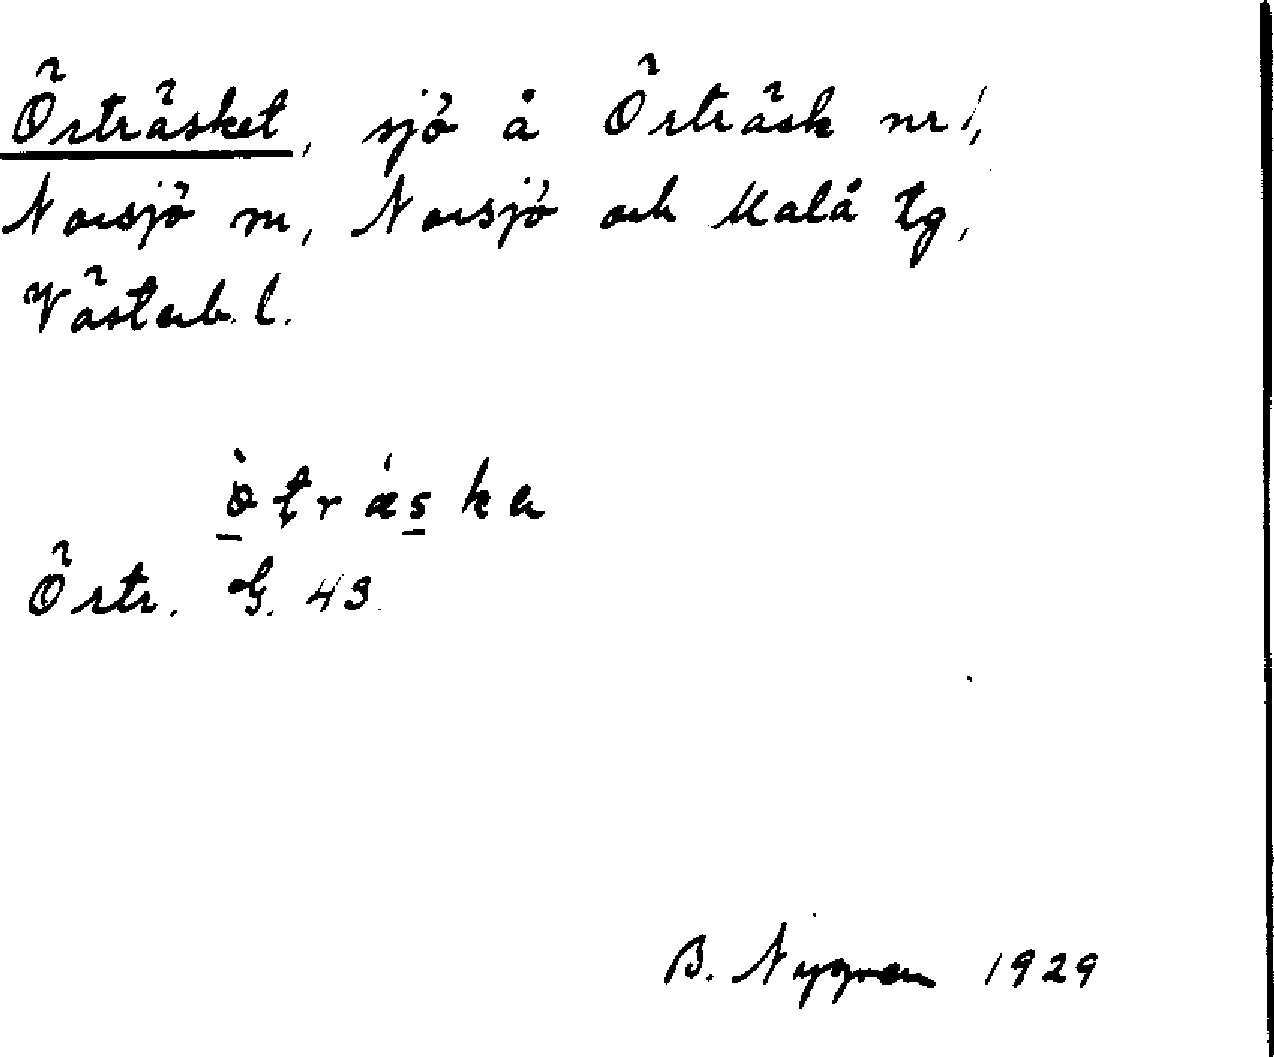 Örträsket, sjö å Örträsk nr 1,
Norsjö sn, Norsjö och Malå tg,
Västerb. l.
Örtr. G. 43.
B. Nygren 1929